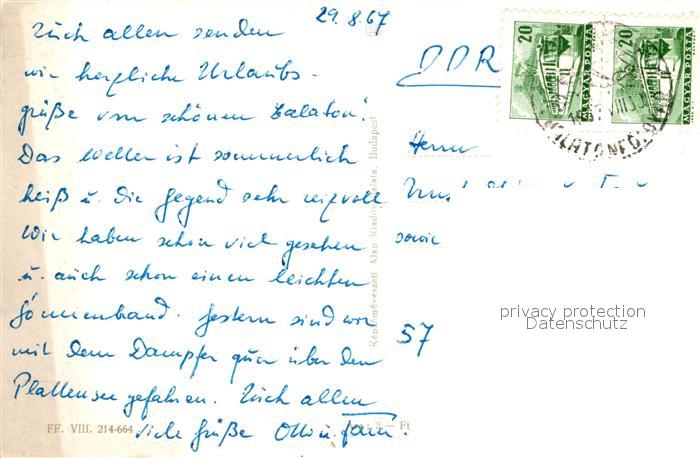 29.8.67
Euch allen senden
wir herzliche Urlaubs-
grüße vom schönen Balaton!
Das Wetter ist sommerlich
heiß u. die Gegend sehr reizvoll
Wir haben schon viel gesehen
u. auch schon einen leichten
Sonnenbrand. Gestern sind wir
mit dem Dampfer quer über den
Plattensee gefahren. Euch allen
viele Grüße Otto u. Fam.
FF. VIII. 214-664
Ft
Képzőművészeti Alap Kiadóvállalata, Budapest
DDR
Herrn
sowie
57
20
MAGYAR POSTA
20
MAGYAR POSTA
privacy protection
Datenschutz